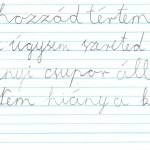 hozzád tértem
úgysem szereted
nyi csupor áll
tem hiány a k